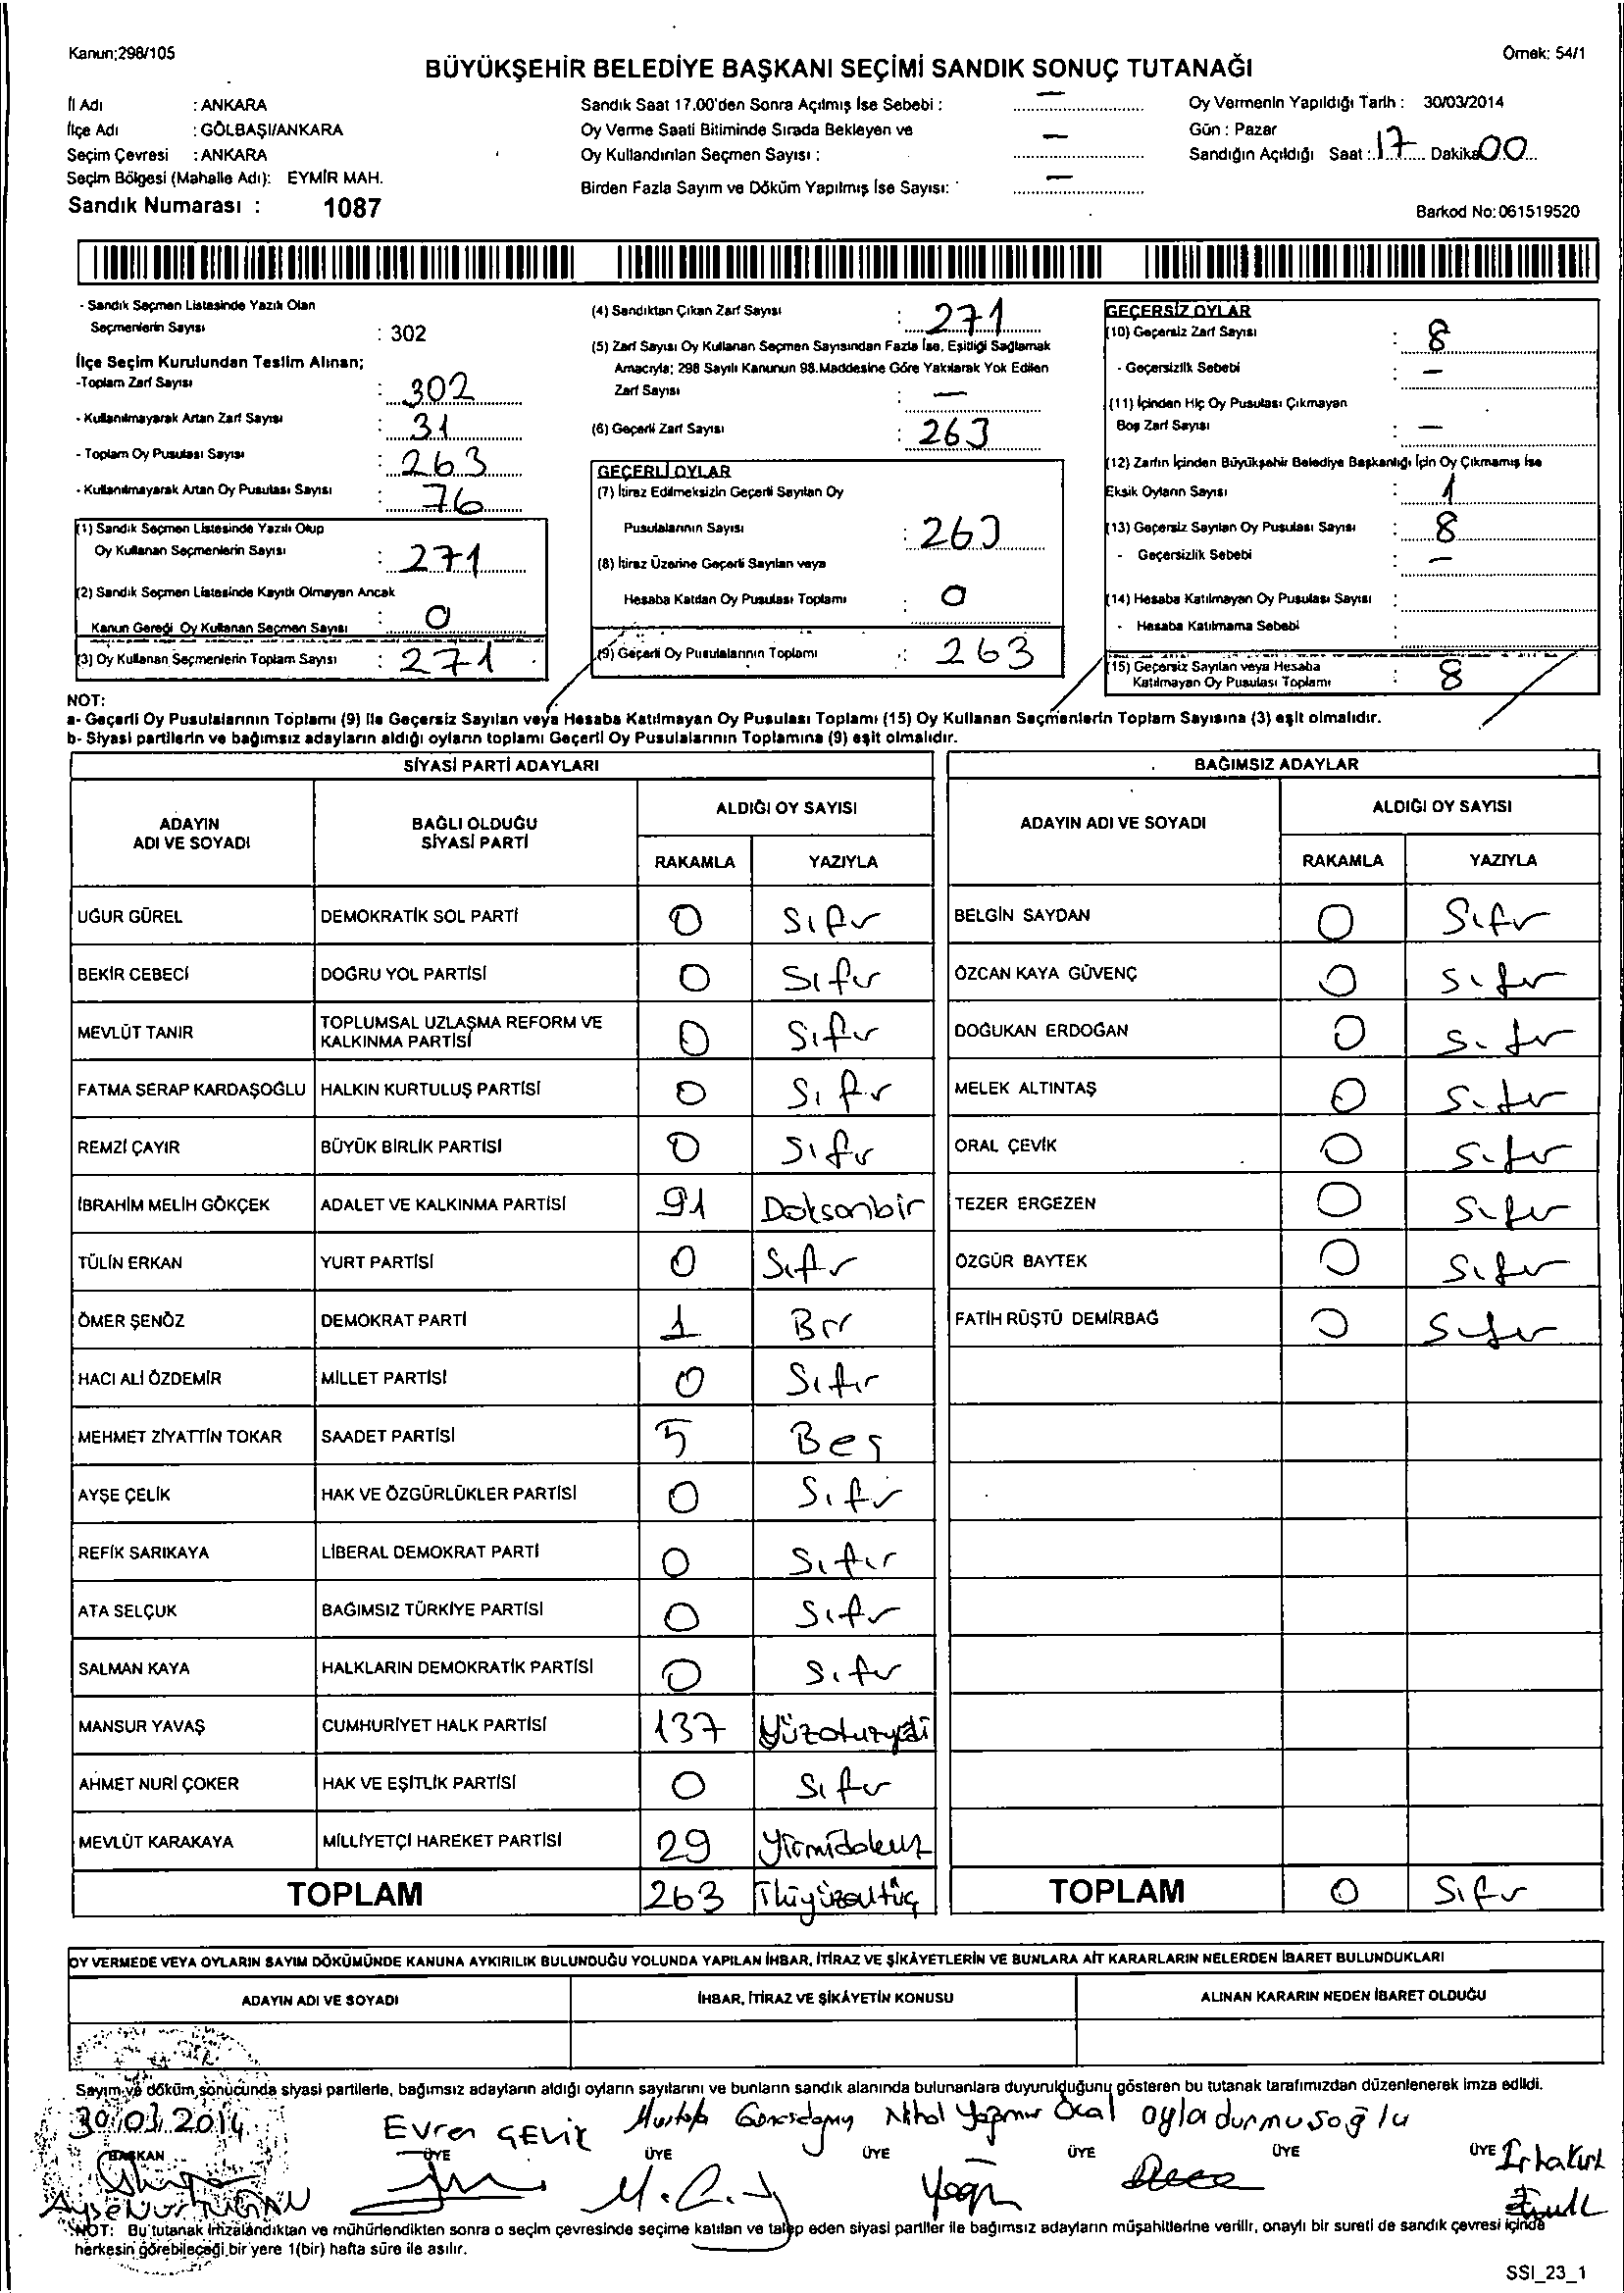 Kanun;298/105
Örnek: 54/1
BÜYÜKŞEHİR BELEDİYE BAŞKANI SEÇİMİ SANDIK SONUÇ TUTANAĞI
İl Adı : ANKARA
İlçe Adı : GÖLBAŞI/ANKARA
Seçim Çevresi : ANKARA
Seçim Bölgesi (Mahalle Adı): EYMİR MAH.
Sandık Numarası : 1087
Sandık Saat 17.00'den Sonra Açılmış İse Sebebi : —
Oy Verme Saati Bitiminde Sırada Bekleyen ve
Oy Kullandırılan Seçmen Sayısı : —
Birden Fazla Sayım ve Döküm Yapılmış İse Sayısı: —
Oy Vermenin Yapıldığı Tarih : 30/03/2014
Gün : Pazar
Sandığın Açıldığı Saat : 17 Dakika 00
Barkod No: 061519520
- Sandık Seçmen Listesinde Yazılı Olan
Seçmenlerin Sayısı : 302
İlçe Seçim Kurulundan Teslim Alınan;
-Toplam Zarf Sayısı : 302
- Kullanılmayarak Artan Zarf Sayısı : 31
- Toplam Oy Pusulası Sayısı : 263
- Kullanılmayarak Artan Oy Pusulası Sayısı : 76
(1) Sandık Seçmen Listesinde Yazılı Olup
Oy Kullanan Seçmenlerin Sayısı : 271
(2) Sandık Seçmen Listesinde Kayıtlı Olmayan Ancak
Kanun Gereği Oy Kullanan Seçmen Sayısı : 0
(3) Oy Kullanan Seçmenlerin Toplam Sayısı : 271
(4) Sandıktan Çıkan Zarf Sayısı : 271
(5) Zarf Sayısı Oy Kullanan Seçmen Sayısından Fazla İse, Eşitliği Sağlamak
Amacıyla; 298 Sayılı Kanunun 98.Maddesine Göre Yakılarak Yok Edilen
Zarf Sayısı : —
(6) Geçerli Zarf Sayısı : 263
GEÇERLİ OYLAR
(7) İtiraz Edilmeksizin Geçerli Sayılan Oy
Pusulalarının Sayısı : 263
(8) İtiraz Üzerine Geçerli Sayılan veya
Hesaba Katılan Oy Pusulası Toplamı : 0
(9) Geçerli Oy Pusulalarının Toplamı : 263
GEÇERSİZ OYLAR
(10) Geçersiz Zarf Sayısı : 8
- Geçersizlik Sebebi : —
(11) İçinden Hiç Oy Pusulası Çıkmayan
Boş Zarf Sayısı : —
(12) Zarfın İçinden Büyükşehir Belediye Başkanlığı İçin Oy Çıkmamış İse
Eksik Oyların Sayısı : 1
(13) Geçersiz Sayılan Oy Pusulası Sayısı : 8
- Geçersizlik Sebebi : —
(14) Hesaba Katılmayan Oy Pusulası Sayısı :
- Hesaba Katılmama Sebebi :
(15) Geçersiz Sayılan veya Hesaba
Katılmayan Oy Pusulası Toplamı : 8
NOT:
a- Geçerli Oy Pusulalarının Toplamı (9) ile Geçersiz Sayılan veya Hesaba Katılmayan Oy Pusulası Toplamı (15) Oy Kullanan Seçmenlerin Toplam Sayısına (3) eşit olmalıdır.
b- Siyasi partilerin ve bağımsız adayların aldığı oyların toplamı Geçerli Oy Pusulalarının Toplamına (9) eşit olmalıdır.
SİYASİ PARTİ ADAYLARI
ADAYIN ADI VE SOYADI BAĞLI OLDUĞU SİYASİ PARTİ ALDIĞI OY SAYISI
RAKAMLA YAZIYLA
UĞUR GÜREL DEMOKRATİK SOL PARTİ 0 Sıfır
BEKİR CEBECİ DOĞRU YOL PARTİSİ 0 Sıfır
MEVLÜT TANIR TOPLUMSAL UZLAŞMA REFORM VE KALKINMA PARTİSİ 0 Sıfır
FATMA SERAP KARDAŞOĞLU HALKIN KURTULUŞ PARTİSİ 0 Sıfır
REMZİ ÇAYIR BÜYÜK BİRLİK PARTİSİ 0 Sıfır
İBRAHİM MELİH GÖKÇEK ADALET VE KALKINMA PARTİSİ 91 Doksanbir
TÜLİN ERKAN YURT PARTİSİ 0 Sıfır
ÖMER ŞENÖZ DEMOKRAT PARTİ 1 Bir
HACI ALİ ÖZDEMİR MİLLET PARTİSİ 0 Sıfır
MEHMET ZİYATTİN TOKAR SAADET PARTİSİ 5 Beş
AYŞE ÇELİK HAK VE ÖZGÜRLÜKLER PARTİSİ 0 Sıfır
REFİK SARIKAYA LİBERAL DEMOKRAT PARTİ 0 Sıfır
ATA SELÇUK BAĞIMSIZ TÜRKİYE PARTİSİ 0 Sıfır
SALMAN KAYA HALKLARIN DEMOKRATİK PARTİSİ 0 Sıfır
MANSUR YAVAŞ CUMHURİYET HALK PARTİSİ 137 Yüzotuzyedi
AHMET NURİ ÇOKER HAK VE EŞİTLİK PARTİSİ 0 Sıfır
MEVLÜT KARAKAYA MİLLİYETÇİ HAREKET PARTİSİ 29 Yirmidokuz
TOPLAM 263
BAĞIMSIZ ADAYLAR
ADAYIN ADI VE SOYADI ALDIĞI OY SAYISI
RAKAMLA YAZIYLA
BELGİN SAYDAN 0 Sıfır
ÖZCAN KAYA GÜVENÇ 0 Sıfır
DOĞUKAN ERDOĞAN 0 Sıfır
MELEK ALTINTAŞ 0 Sıfır
ORAL ÇEVİK 0 Sıfır
TEZER ERGEZEN 0 Sıfır
ÖZGÜR BAYTEK 0 Sıfır
FATİH RÜŞTÜ DEMİRBAĞ 0 Sıfır
TOPLAM 0 Sıfır
OY VERMEDE VEYA OYLARIN SAYIM DÖKÜMÜNDE KANUNA AYKIRILIK BULUNDUĞU YOLUNDA YAPILAN İHBAR, İTİRAZ VE ŞİKÂYETLERİN VE BUNLARA AİT KARARLARIN NELERDEN İBARET BULUNDUKLARI
ADAYIN ADI VE SOYADI İHBAR, İTİRAZ VE ŞİKÂYETİN KONUSU ALINAN KARARIN NEDEN İBARET OLDUĞU
Sayım ve döküm sonucunda siyasi partilerle, bağımsız adayların aldığı oyların sayılarını ve bunların sandık alanında bulunanlara duyurulduğunu gösteren bu tutanak tarafımızdan düzenlenerek imza edildi.
30.03.2014 Evren ÇELİK Mustafa Nihal Yağmur Öcal Oyla durmuşoğlu
BAŞKAN ÜYE ÜYE ÜYE ÜYE ÜYE ÜYE
NOT: Bu tutanak imzalandıktan ve mühürlendikten sonra o seçim çevresinde seçime katılan ve talep eden siyasi partiler ile bağımsız adayların müşahitlerine verilir, onaylı bir sureti de sandık çevresi içinde
herkesin görebileceği bir yere 1(bir) hafta süre ile asılır.
SSI_23_1